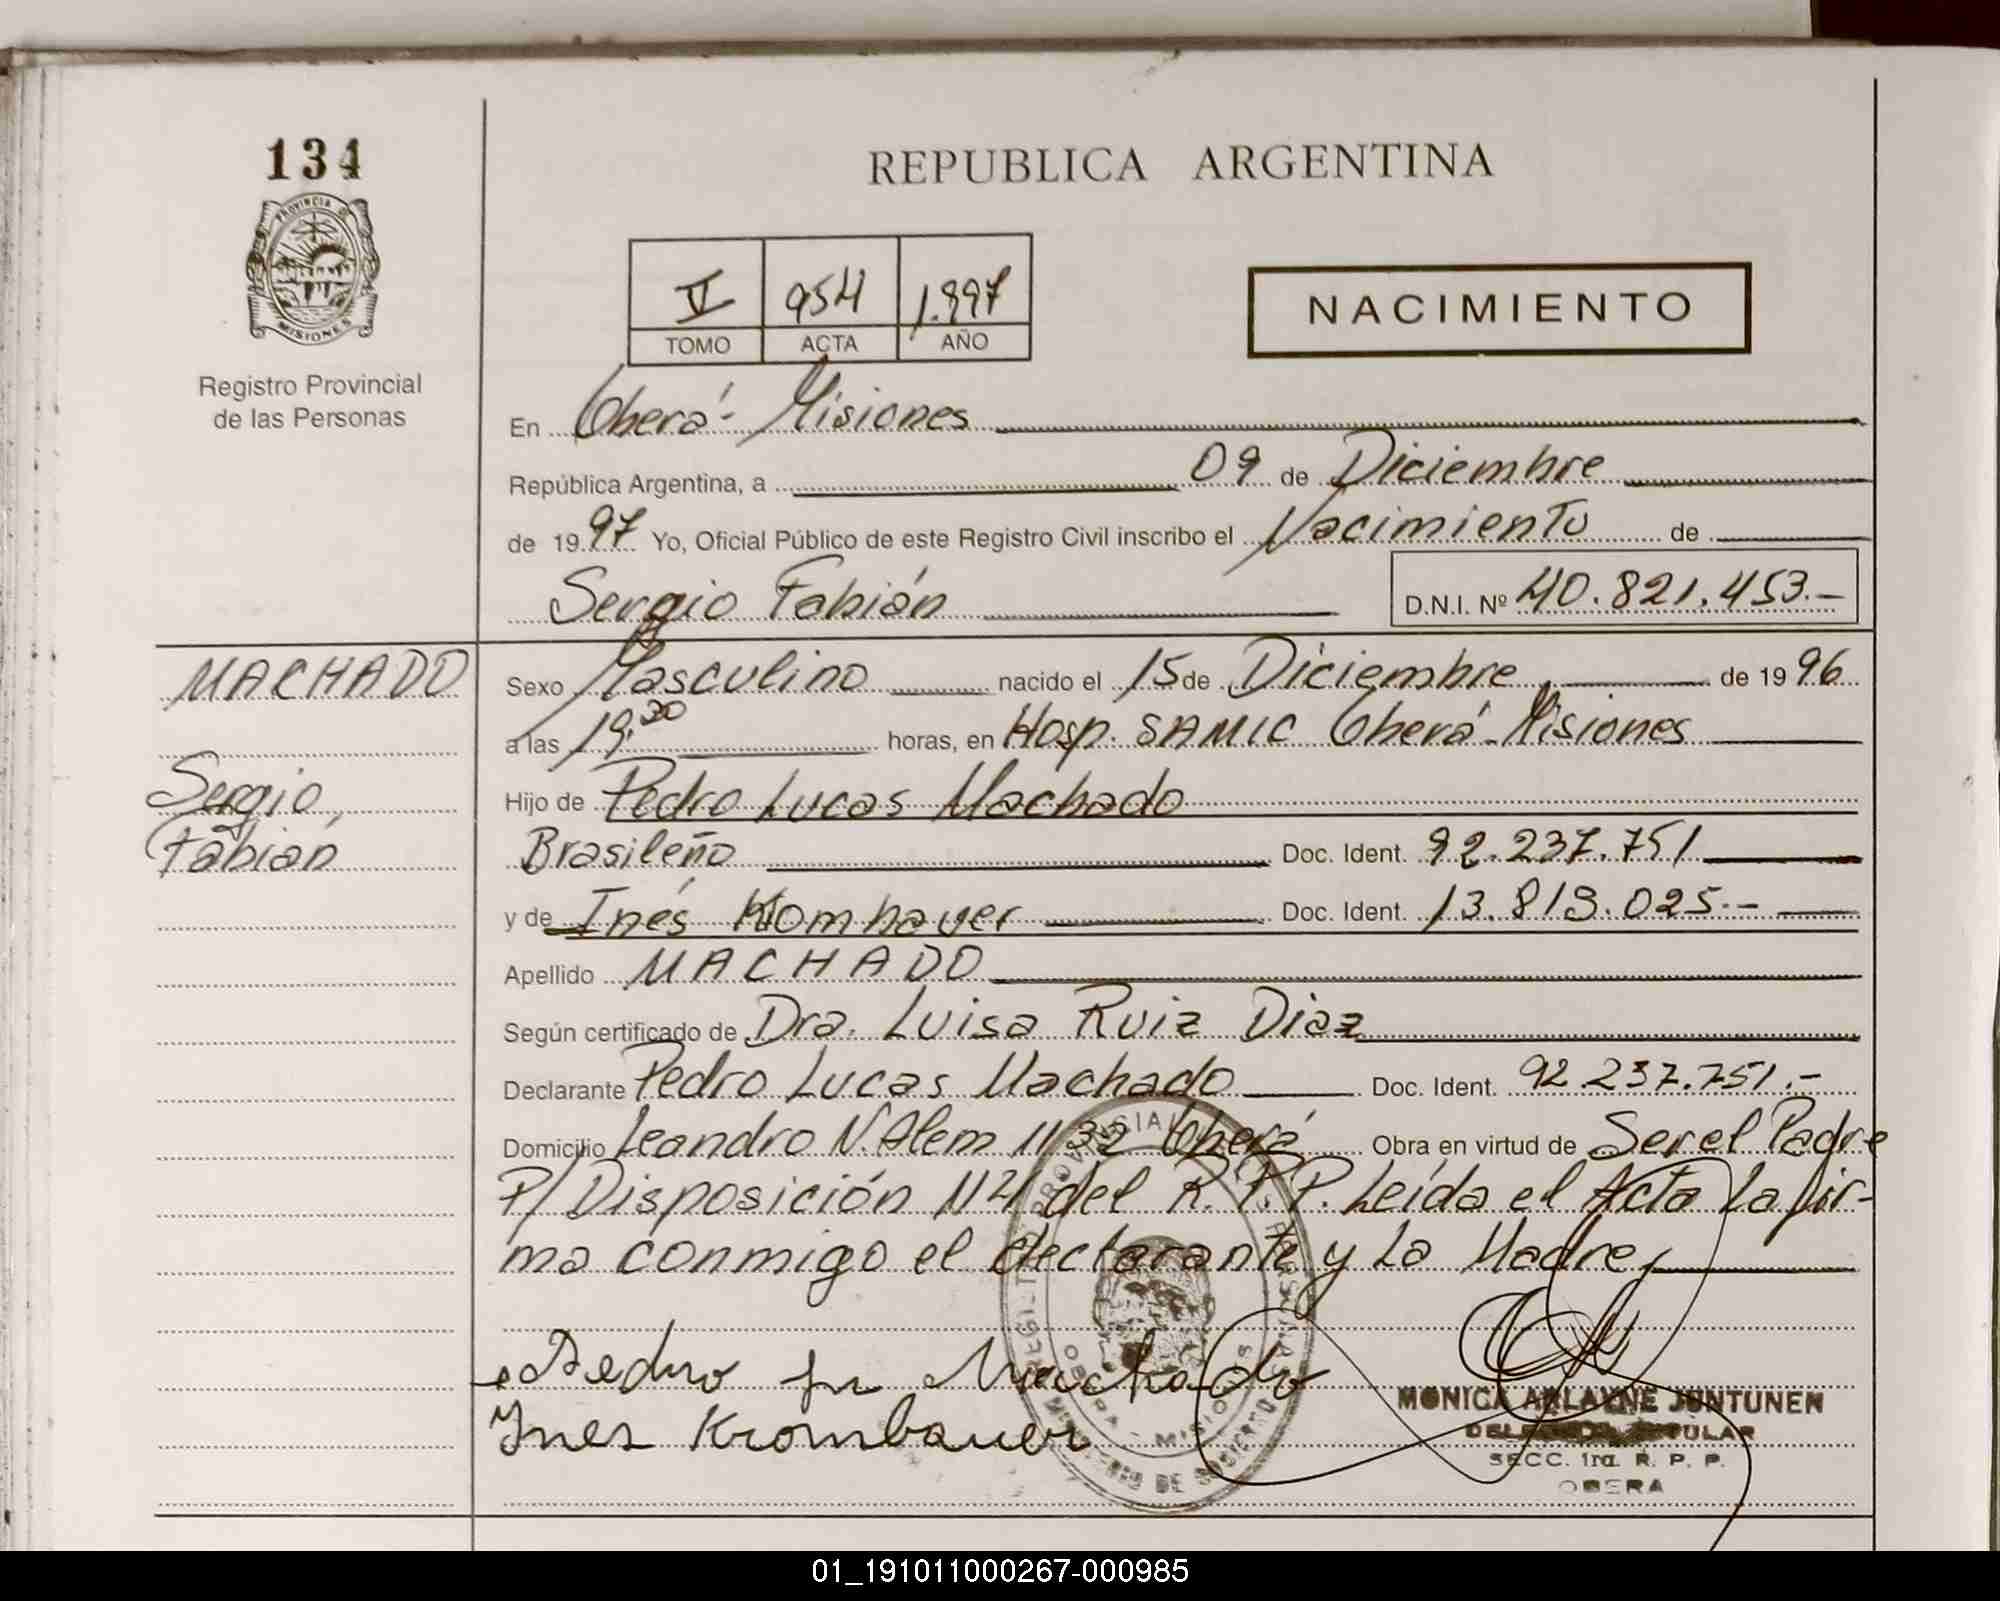 134
PROVINCIA DE
MISIONES
Registro Provincial
de las Personas
REPUBLICA ARGENTINA
V 954 1.997
TOMO ACTA AÑO
NACIMIENTO
En Oberá - Misiones
República Argentina, a 09 de Diciembre
de 1997 Yo, Oficial Público de este Registro Civil inscribo el Nacimiento de
Sergio Fabián D.N.I. Nº 40.821.453.-
MACHADO
Sergio
Fabián
Sexo Masculino nacido el 15 de Diciembre de 1996
a las 19,30 horas, en Hosp. SAMIC Oberá - Misiones
Hijo de Pedro Lucas Machado
Brasileño Doc. Ident. 92.237.751
y de Inés Doc. Ident. 13.819.025.-
Apellido MACHADO
Según certificado de Dra. Luisa Ruiz Diaz
Declarante Pedro Lucas Machado Doc. Ident. 92.237.751.-
Domicilio Leandro N. Alem 1132 Oberá Obra en virtud de Ser el Padre
P/ Disposición del R.P.P. Leída el Acta La fir-
ma conmigo el declarante y La Madre,
Pedro Machado
Ines Krombauer
OBERA - MISIONES
MONICA ARLAYNE JUNTUNEN
SECC. 1ra. R. P. P.
OBERA
01_191011000267-000985